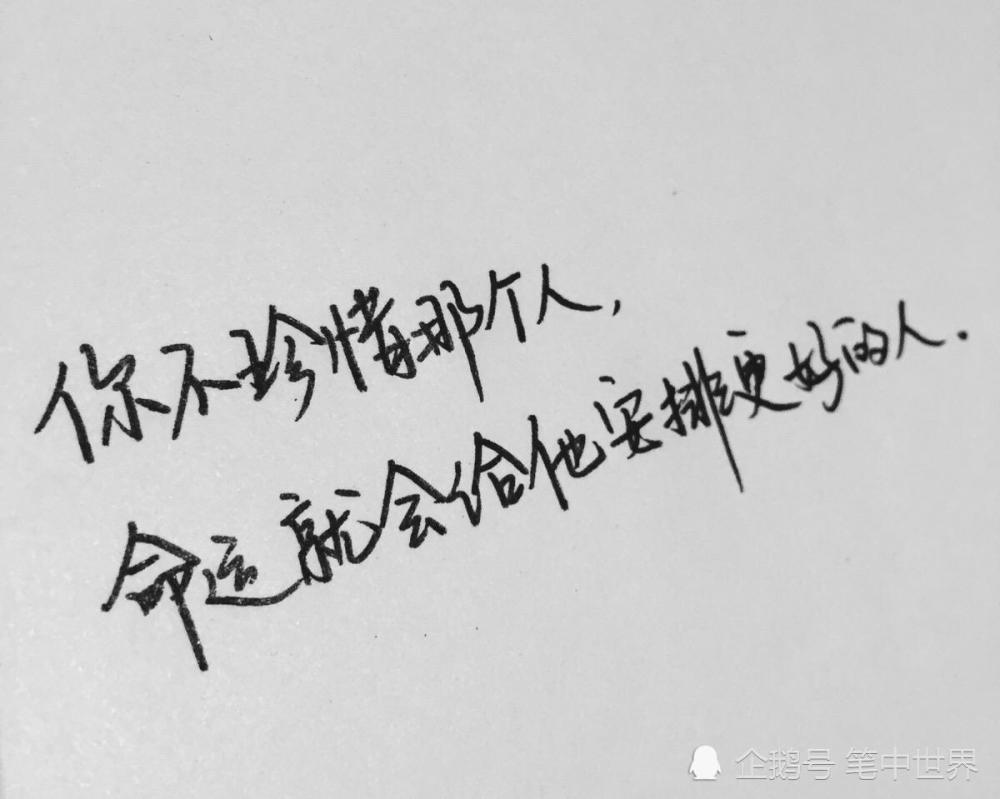 你不珍惜那个人,
命运就会给他安排更好的人.
企鹅号 笔中世界